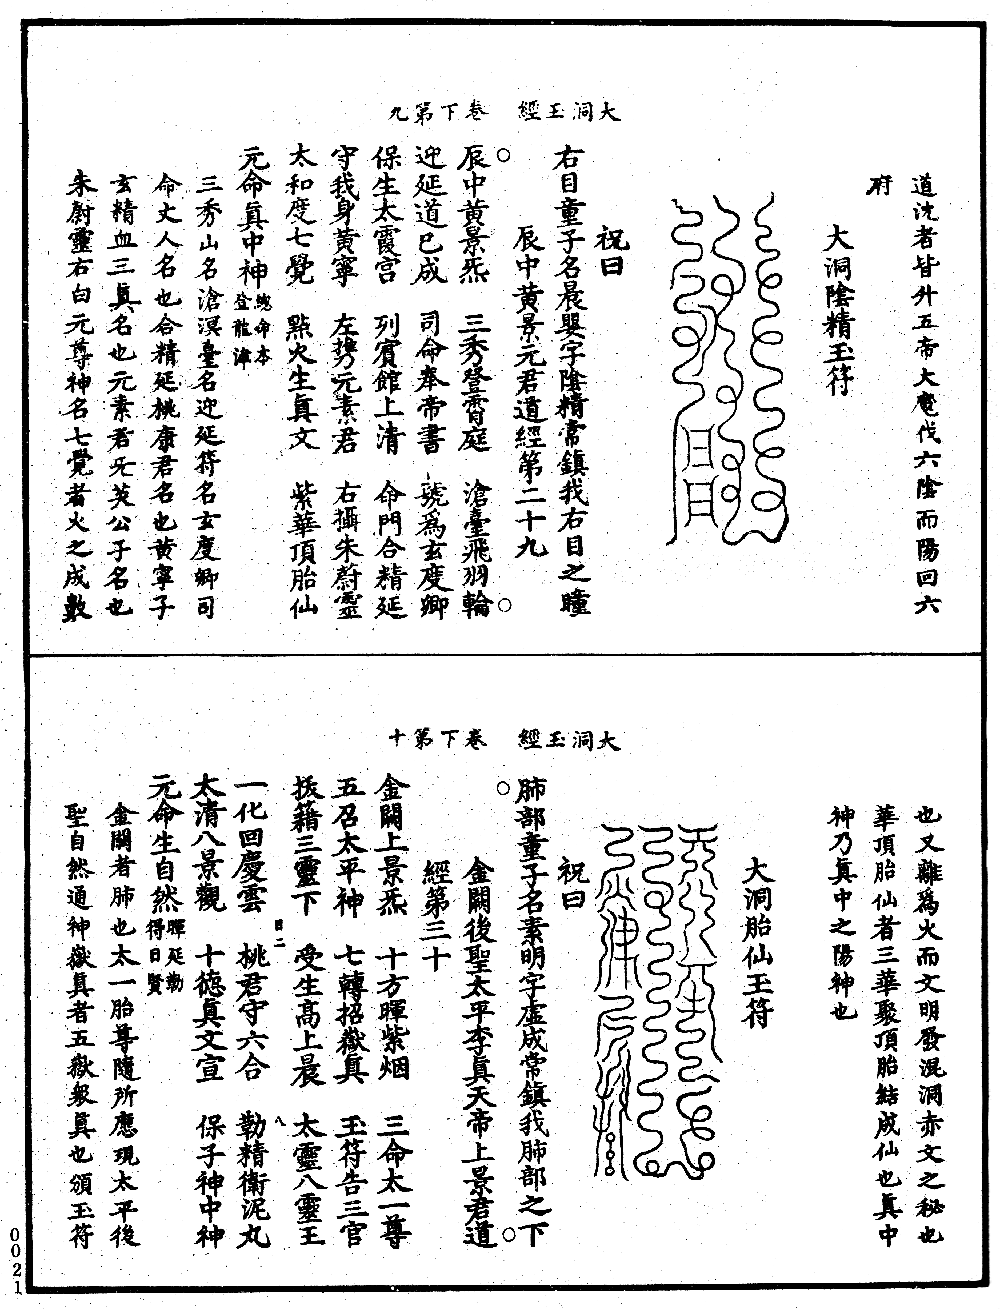 大洞玉經　卷下第九
道沈者皆升五帝大魔伐六陰而陽回六
府
大洞陰精玉符
祝曰
右目童子名晨嬰字陰精常鎮我右目之瞳
辰中黄景元君道經第二十九
○　○
辰中黄景炁　三秀登霄庭　滄臺飛羽輪
迎延道已成　司命奉帝書　號為玄度卿
保生太霞宫　列賓館上清　命門合精延
守我身黄寧　左攜元素君　右攝朱蔚靈
太和度七覺　點火生真文　紫華頂胎仙
元命真中神總命本登龍津
三秀山名滄溟臺名迎延符名玄度卿司
命丈人名也合精延桃康君名也黄寧子
玄精血三真名也元素君旡英公子名也
朱蔚靈右白元尊神名七覺者火之成數
大洞玉經　卷下第十
也又離為火而文明發混洞赤文之秘也
華頂胎仙者三華聚頂胎結成仙也真中
神乃真中之陽神也
大洞胎仙玉符
祝曰
肺部童子名素明字虚成常鎮我肺部之下
金闕後聖太平李真天帝上景君道
經第三十
○　○
金闕上景炁　十方暉紫烟　三命太一尊
五召太平神　七轉招嶽真　玉符告三官
拔籍三靈下　受生高上晨　太靈八靈王
一化回慶雲　桃君守六合　勒精衛泥丸
太清八景觀　十德真文宣　保子神中神
元命生自然暉延勒得日賢
金闕者肺也太一胎尊隨所應現太平後
聖自然通神嶽真者五嶽衆真也頒玉符
0021